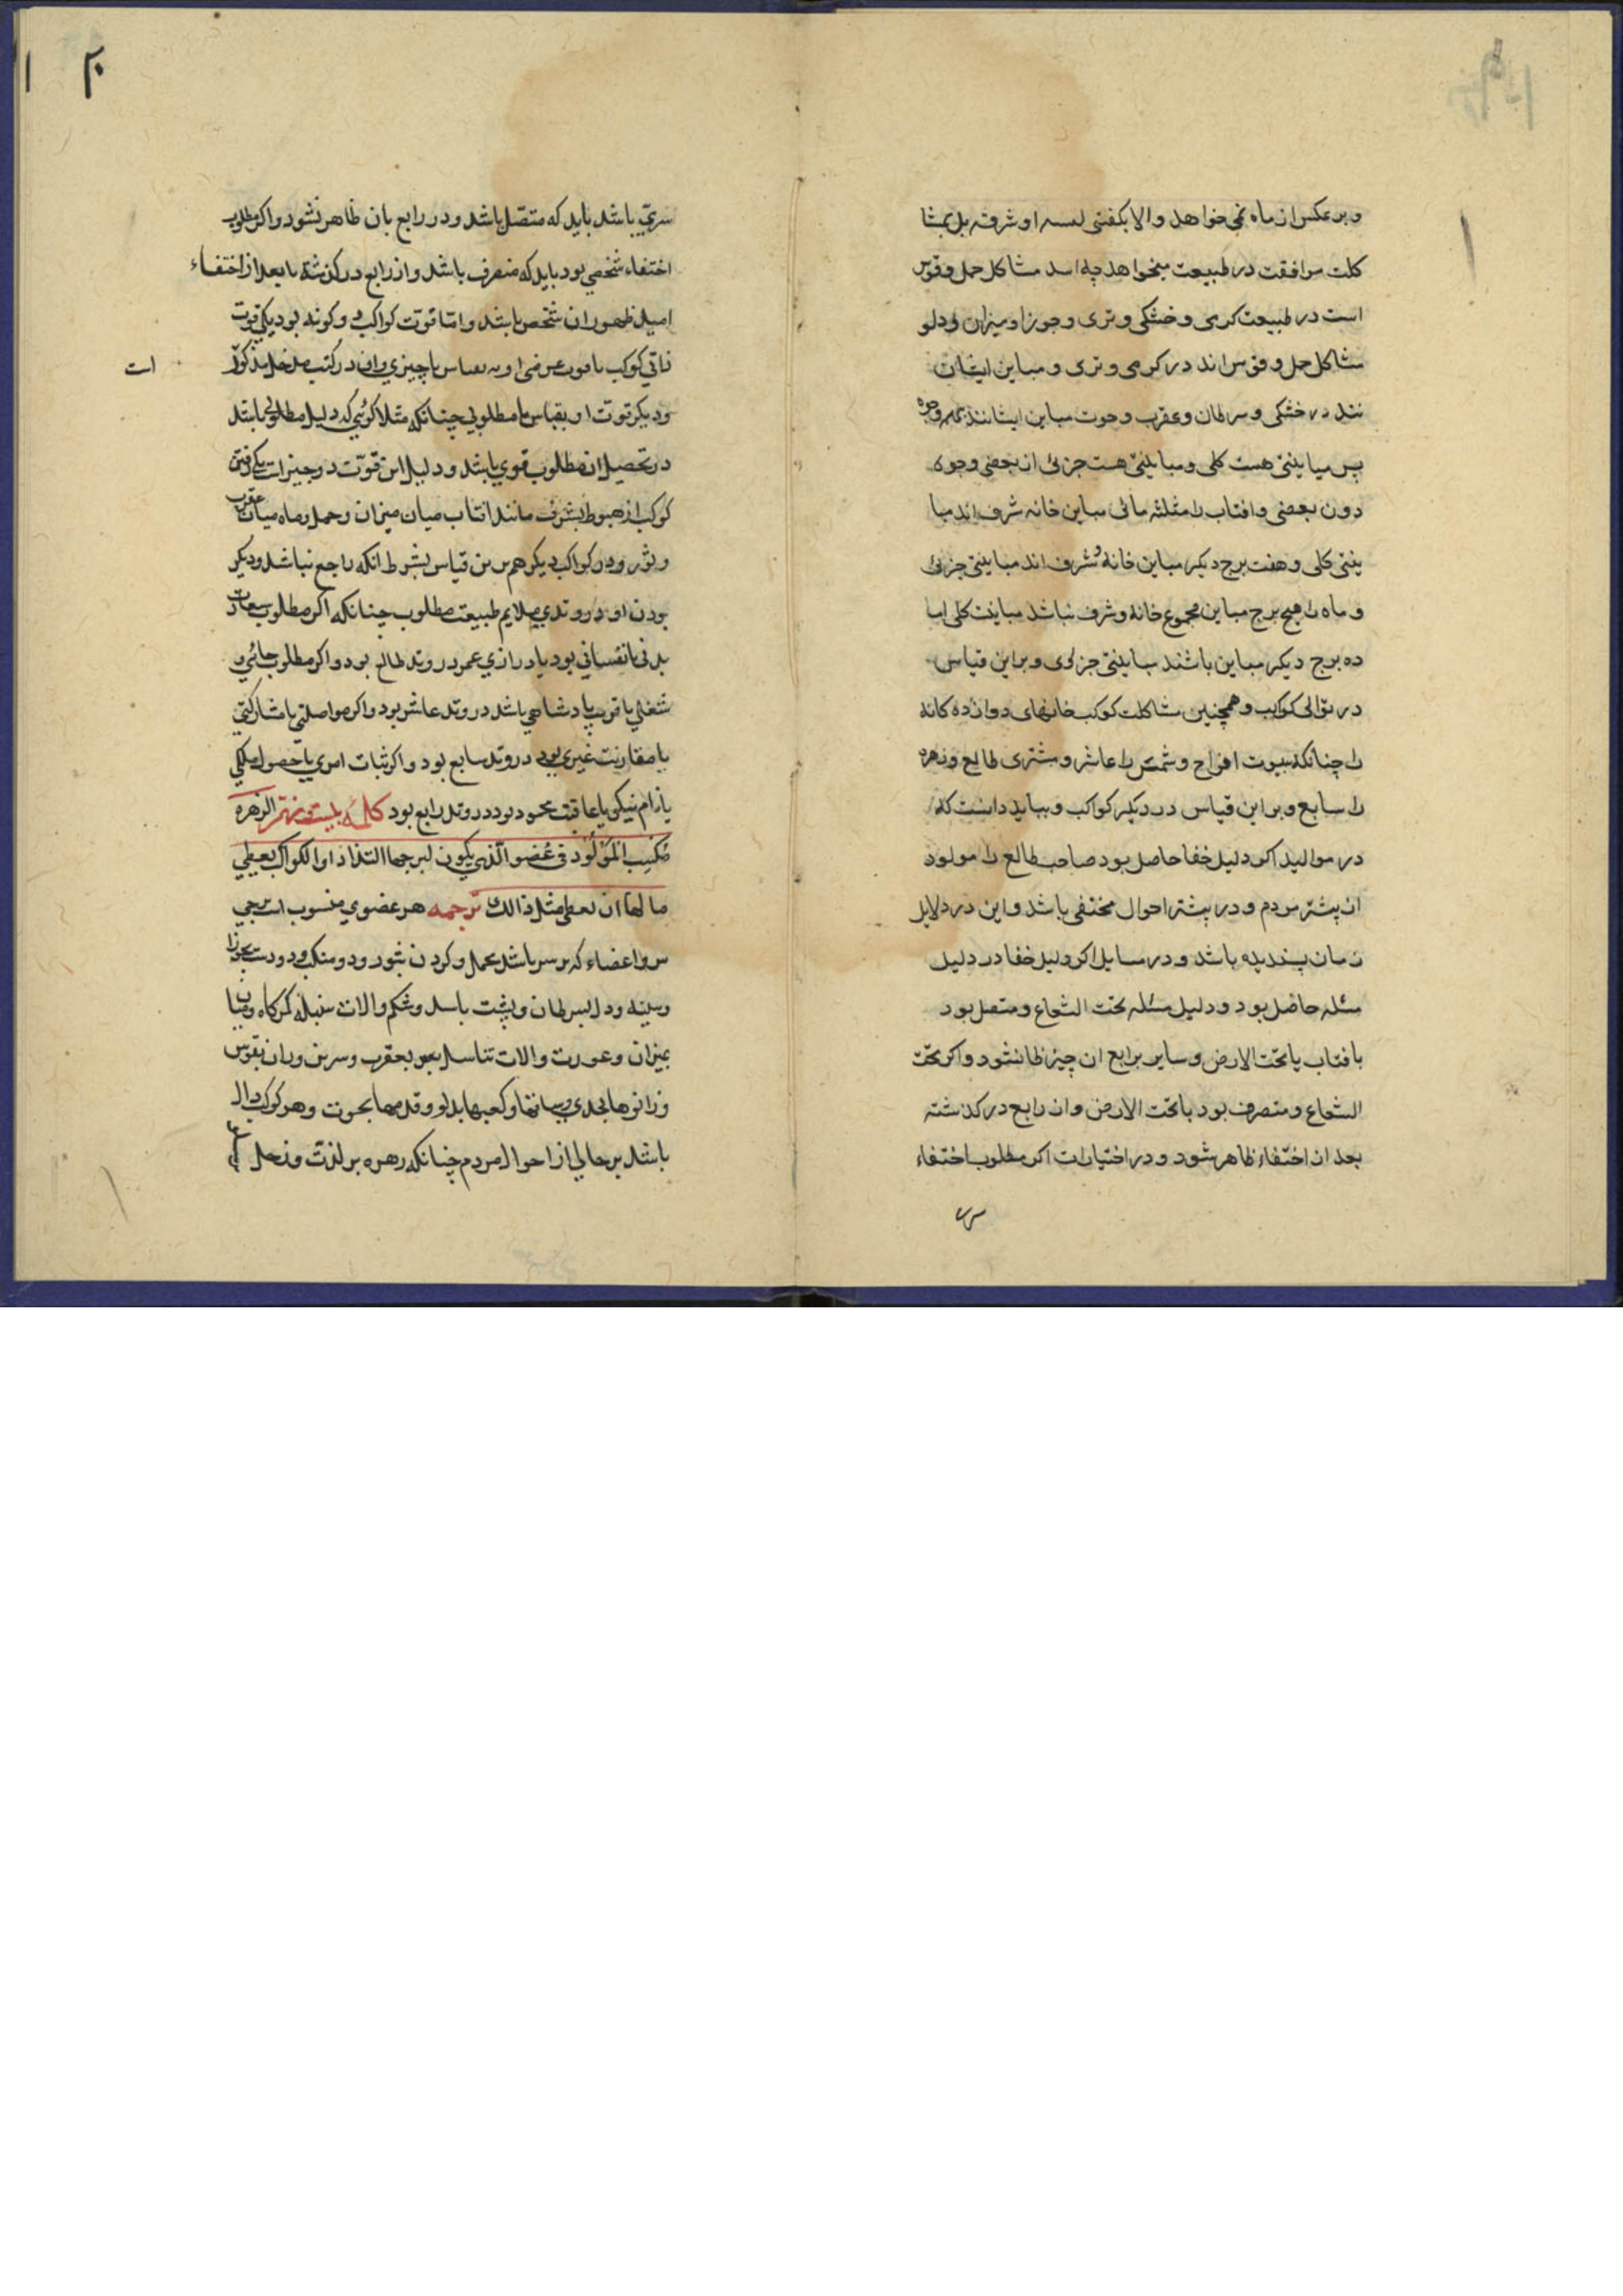 و بر عکس از ماه نمی خواهد والا بکفتی او شرفه بل بمشا
کلت موافقت در طبیعت میخواهد چه اسد مشاکل حمل و قوس
است در طبیعت کرمی و خشکی و تری و جوزا و میزان و دلو
مشاکل حمل و قوس اند در کرمی و تری و مباین ایشان
نند در خشکی و سرطان و عقرب و حوت مباین ایشانند بهمه وجوه
پس مباینتی هست کلی و مباینتی هست جزئی از بعضی وجوه
دون بعضی و افتاب را مثلثه مائی مباین خانه شرف اند مبا
ینتی کلی و هفت برج دیکر مباین خانه و شرف اند مباینتی جزئی
و ماه را هیج برج مباین مجموع خانه و شرف نباشد مباینت کلی اما
ده برج دیکر مباین باشند مباینتی جزئی و براین قیاس
در توالی کوکب و همچنین مشاکلت کوکب خانهای دوازده کانه
را چنانکه بیوت افراح و شمس را عاشر و مشتری طالع و زهره
را سابع و براین قیاس در دیکر کواکب و بباید دانست که
در موالید اکر دلیل خفا حاصل بود صاحب طالع را مولود
از پیشتر مردم و در پیشتر احوال مختفی باشد و این در دلایل
زمان پسندیده باشد و در مسایل اکر دلیل خفا در دلیل
مسئله حاصل بود و دلیل مسئله تحت الشعاع و متصل بود
بافتاب یا تحت الارض و سایر برابع ان چیز ظا نشود و اکر تحت
الشعاع و منصرف بود یا تحت الارض و از رابع در کذشته
بعد از اختفاء ظاهر شود و در اختیارات اکر مطلوب اختفاء
سر
۲۰
سریّ باشد باید که متصّل باشد و در رابع بان ظاهر نشود و اکر مطلوب
اختفاء شخصی بود باید که منصرف باشد و از رابع در کذشته تا بعد از اختفاء
امید ظهور ان شخص باشد و امّا قوّت کواکب دو کونه بود یکی قوّت
ذاتی کوکب یا قوت عرضی او بقیاس با چیزی وان در کتب مدخل مذکور
است
و دیکر قوّت او بقیاس با مطلوبی چنانکه مثلا کوئی که دلیل مطلوب باشد
در تحصیل ان مطلوب قوی باشد و دلیل این قوّت دو چیز است یکی رفتن
کوکب از هبوط بشرف مانند افتاب میان میزان و حمل و ماه میان عقرب
و ثور و در کواکب دیکر هم برین قیاس بشرط انکه راجع نباشد و دیکر
بودن او در وتدی ملایم طبیعت مطلوب چنانکه اکر مطلوب سعادت
بدنی یا نفسانی بود یا درازی عمر در وتد طالع بود و اکر مطلوب جائی و
شغلی یا قرب پادشاهی باشد در وتد عاشر بود و اکر مواصلتی یا مشارکتی
یا مقارنت غیری بود در وتد سابع بود و اکر ثبات امری یا حصول ملکی
یا نام نیکو یا عاقبت محمود بود در وتد رابع بود کلمه بیست و نهم الزهره
تکسب المولود فی عضو الذی یکون لبرجها التذاذا والکواکب یعطی
مالها ان یعطی مثل ذالک ترجمه هر عضوی منسوب است ببرجی
سر و اعضاء که بر سر باشد بحمل و کردن بثور و دو منکب و دو دست بجوزا
وسینه و دل بسرطان و پشت باسد و شکم و الات سنبله کمرکاه و میان
بمیزان و عورت و الات تناسل بعقرب و سرین و ران بقوس
و زانوها بجدی و ساقها و کعبها بدلو و قدمها بحوت و هر کوکب دال
باشد بر حالی از احوال مردم چنانکه زهره بر لذت و زحل